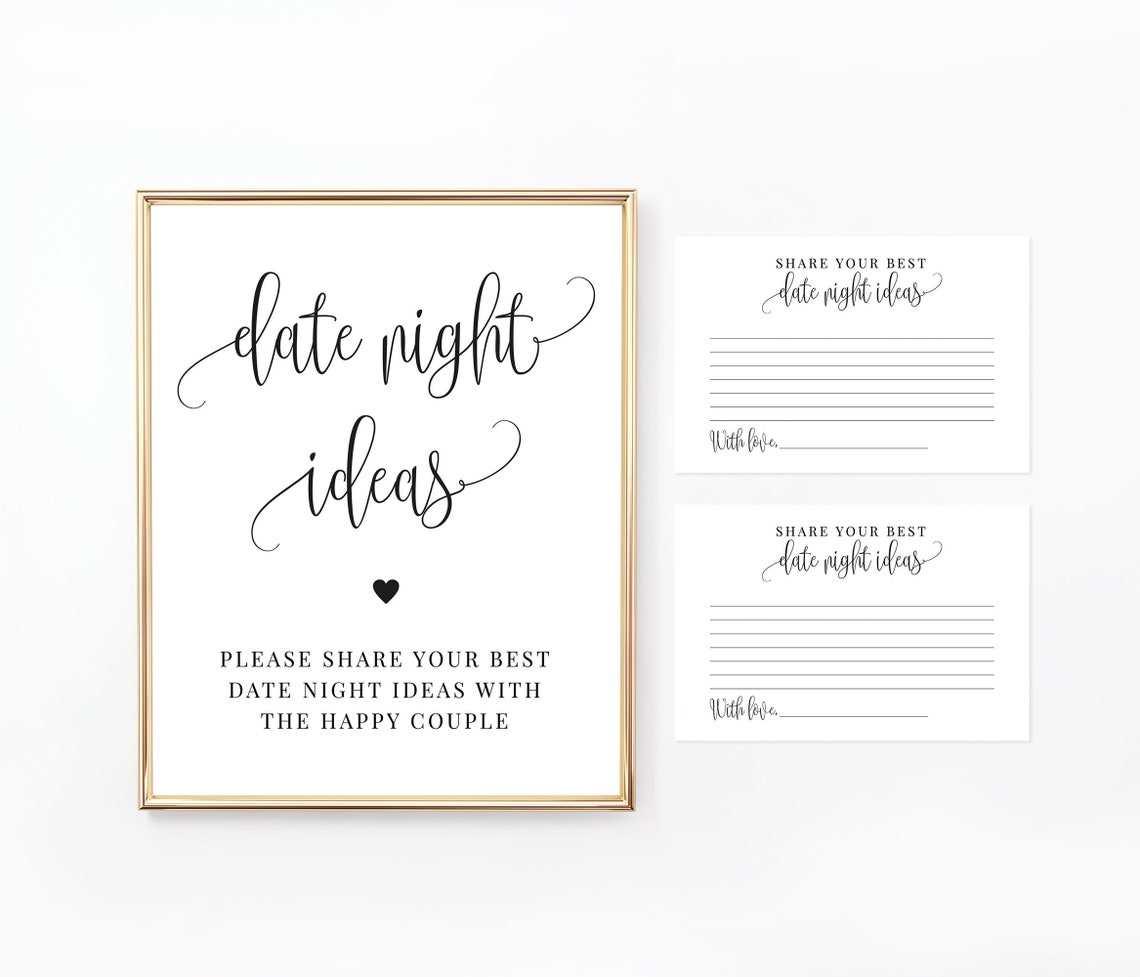 date night
ideas
PLEASE SHARE YOUR BEST
DATE NIGHT IDEAS WITH
THE HAPPY COUPLE
SHARE YOUR BEST
date night ideas
With love,
SHARE YOUR BEST
date night ideas
With love,